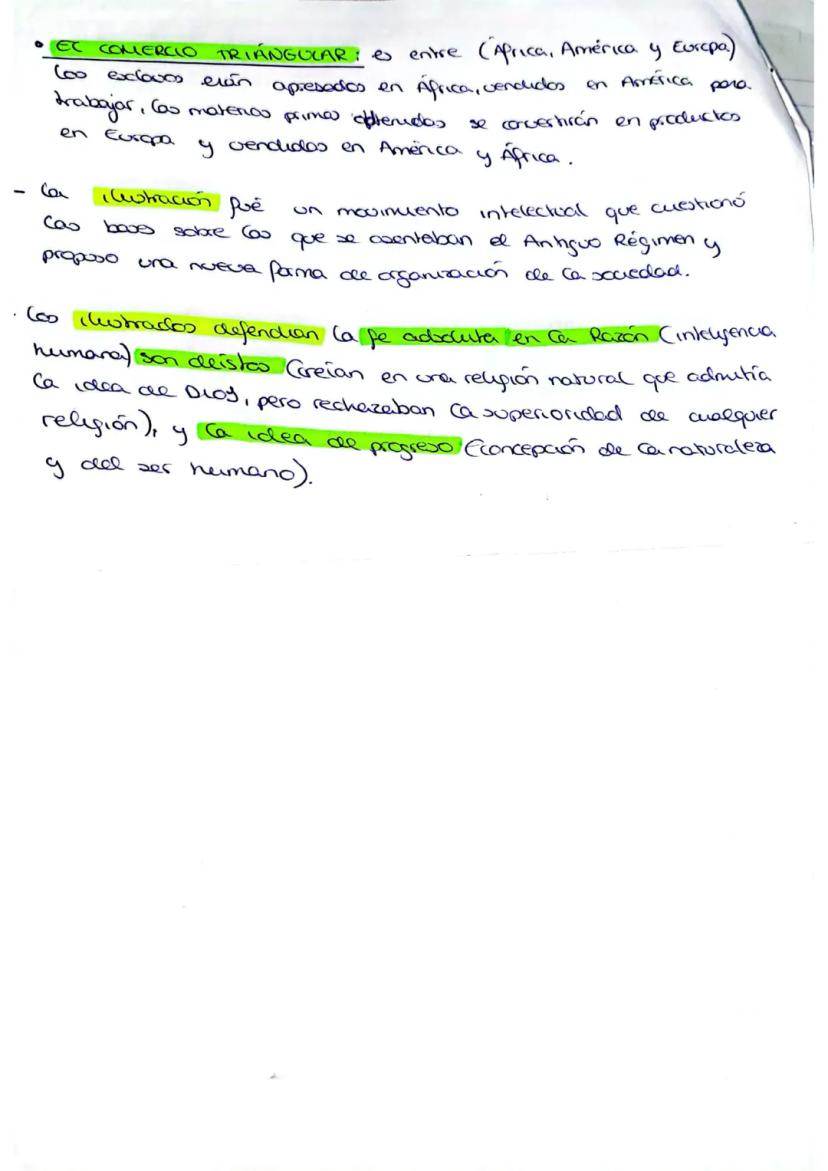 • EL COMERCIO TRIÁNGULAR: es entre (África, América y Europa)
los esclavos erán apresados en África, vendidos en América para
trabajar, las materias primas obtenidas se convestirán en productos
en Europa y vendidos en América y África.
- La ilustración fué un movimiento intelectual que cuestionó
las bases sobre las que se asentaban el Antiguo Régimen y
propuso una nueva forma de organización de la sociedad.
· Los ilustrados defendian la fe absoluta en la Razón (inteligencia
humana) son deistas (creían en una religión natural que admitía
la idea de Dios, pero rechazaban la superioridad de cualquier
religión), y la idea de progreso (concepción de la naturaleza
y del ser humano).